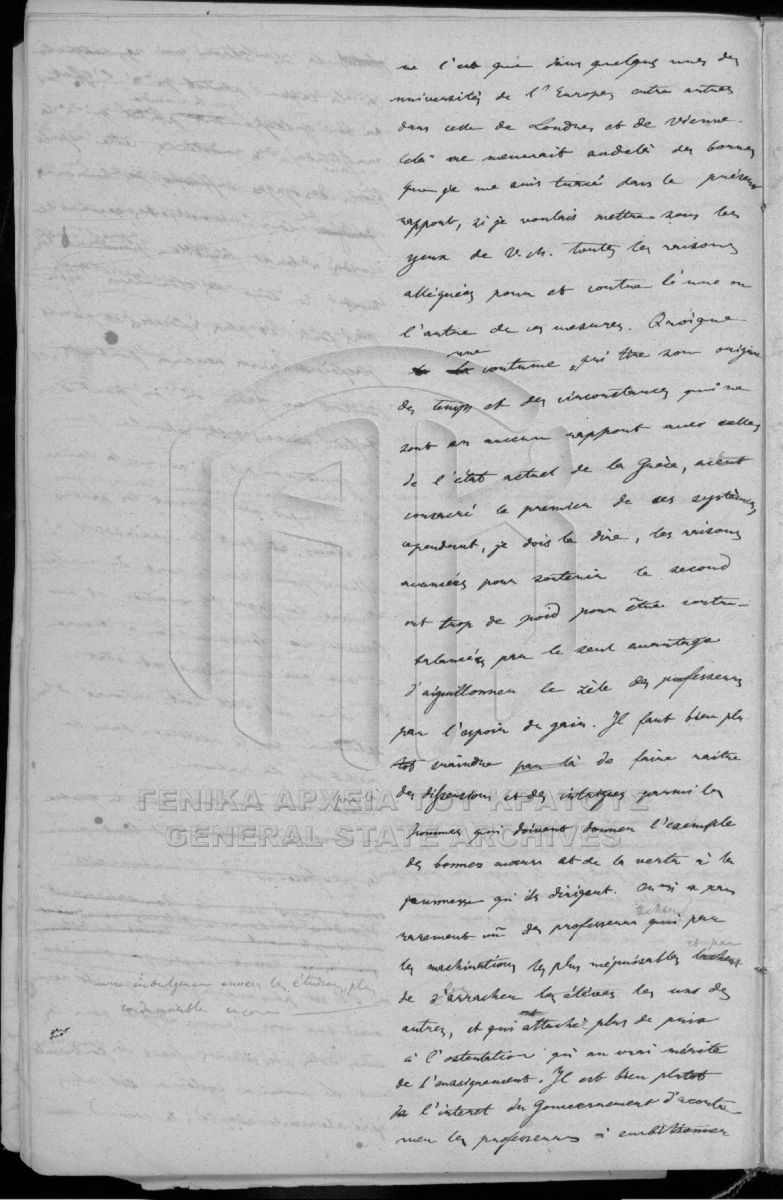 ne l'est que dans quelques unes des
universités de l'Europe, entre autres
dans celle de Londres et de Vienne.
Cela me menerait audelà des bornes
que je me suis tracé dans le présent
rapport, si je voulais mettre sous les
yeux de V. M. toutes les raisons
alléguées pour et contre l'une ou
l'autre de ces mesures. Quoique
une coutume, qui tire son origine
des temps et des circonstances qui ne
sont en aucun rapport avec celles
de l'état actuel de la Grèce, aient
consacré le premier de ces systèmes,
cependant, je dois le dire, les raisons
avancées pour soutenir le second
ont trop de poid pour être contre-
balancées par le seul avantage
d'aiguillonner le zèle des professeurs
par l'espoir du gain. Il faut bien plu
tot craindre par là de faire naitre
des dissensions et des intrigues parmi les
hommes qui doivent donner l'exemple
des bonnes mœurs et de la vertu à la
jeunesse qu'ils dirigent. On a vu pas
rarement des professeurs
les machinations les plus méprisables et par
une indulgence envers les étudiants plus
condamnable encore
de s'arracher les élèves les uns des
autres, et qui attachent plus de prix
à l'ostentation qu'au vrai mérite
de l'enseignement. Il est bien plutot
de l'interet du Gouvernement d'accoutu-
mer les professeurs à
ΓΕΝΙΚΑ ΑΡΧΕΙΑ ΤΟΥ ΚΡΑΤΟΥΣ
GENERAL STATE ARCHIVES